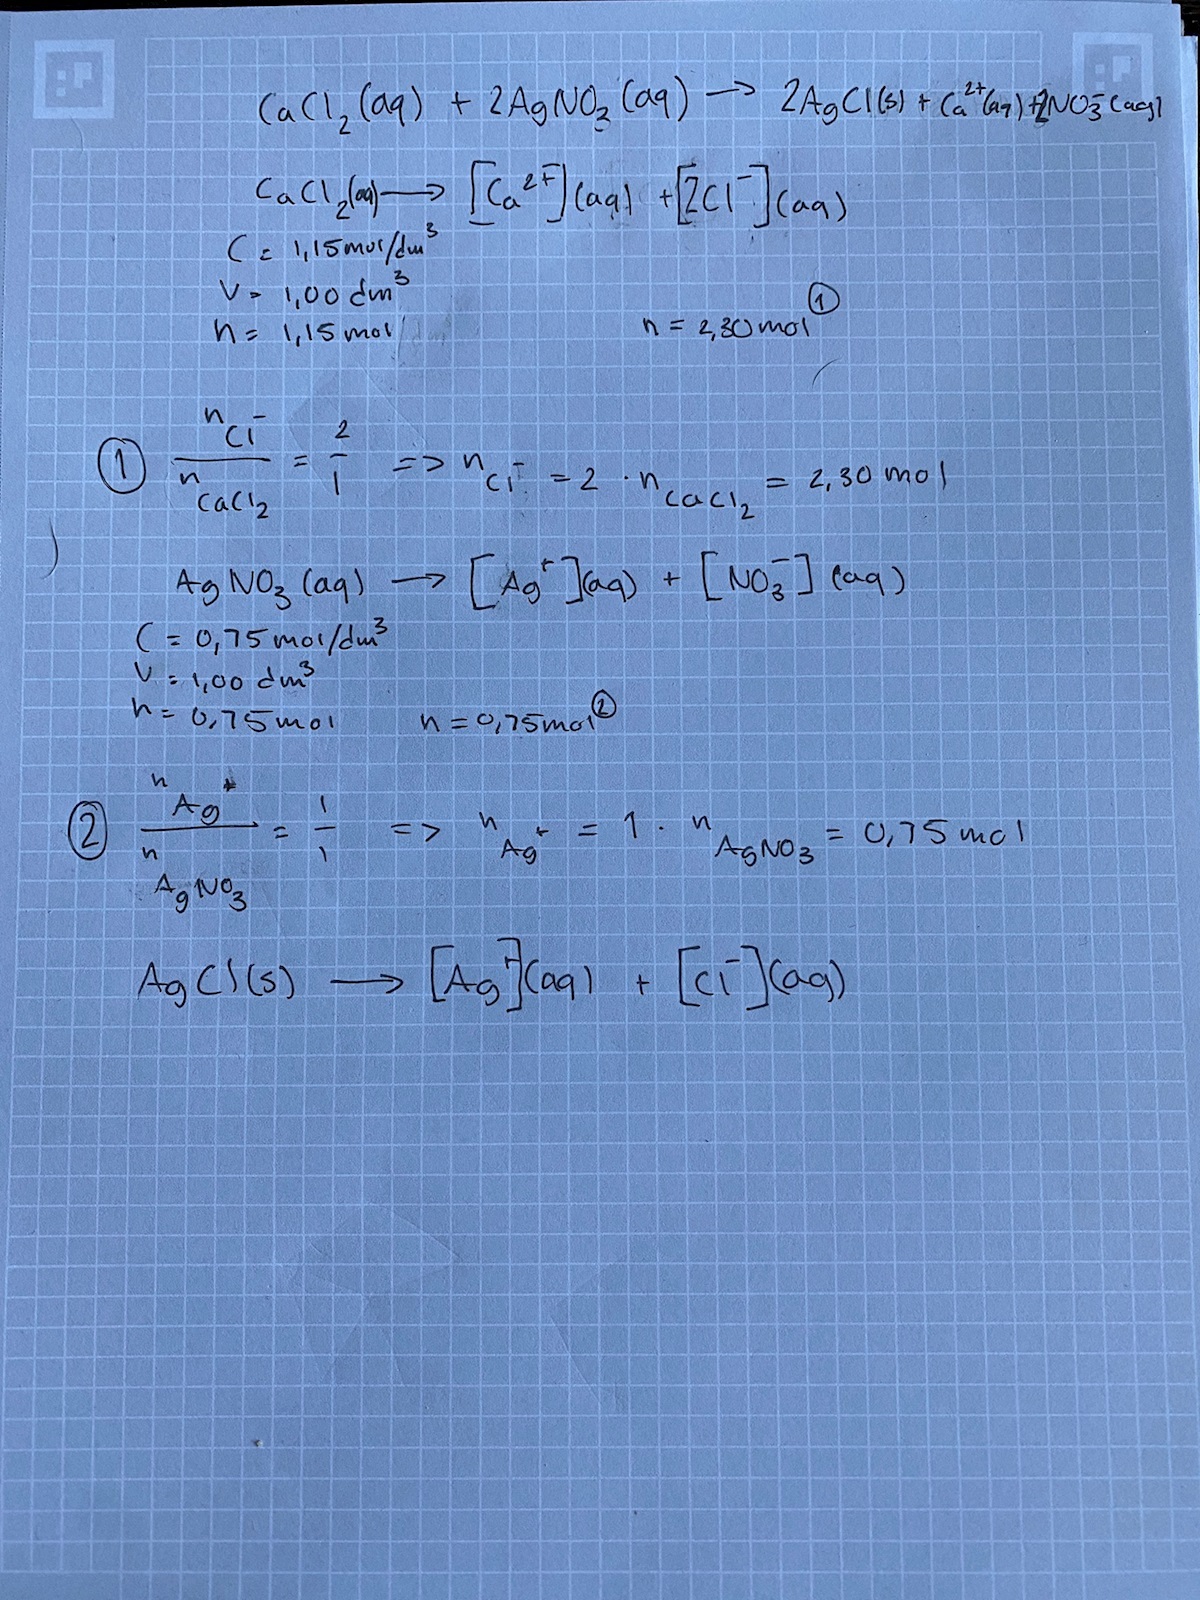 CaCl₂ (aq) + 2AgNO₃ (aq) → 2AgCl(s) + Ca²⁺(aq) + 2NO₃⁻ (aq)
CaCl₂(aq) → [Ca²⁺](aq) + [2Cl⁻](aq)
C = 1,15mol/dm³
V = 1,00 dm³
n = 1,15 mol n = 2,30 mol ①
① nCl⁻/nCaCl₂ = 2/1 => nCl⁻ = 2 · nCaCl₂ = 2,30 mol
AgNO₃ (aq) → [Ag⁺](aq) + [NO₃⁻] (aq)
C = 0,75 mol/dm³
V = 1,00 dm³
n = 0,75 mol n = 0,75 mol ②
② nAg⁺/nAgNO₃ = 1/1 => nAg⁺ = 1 · nAgNO₃ = 0,75 mol
AgCl(s) → [Ag⁺](aq) + [Cl⁻](aq)